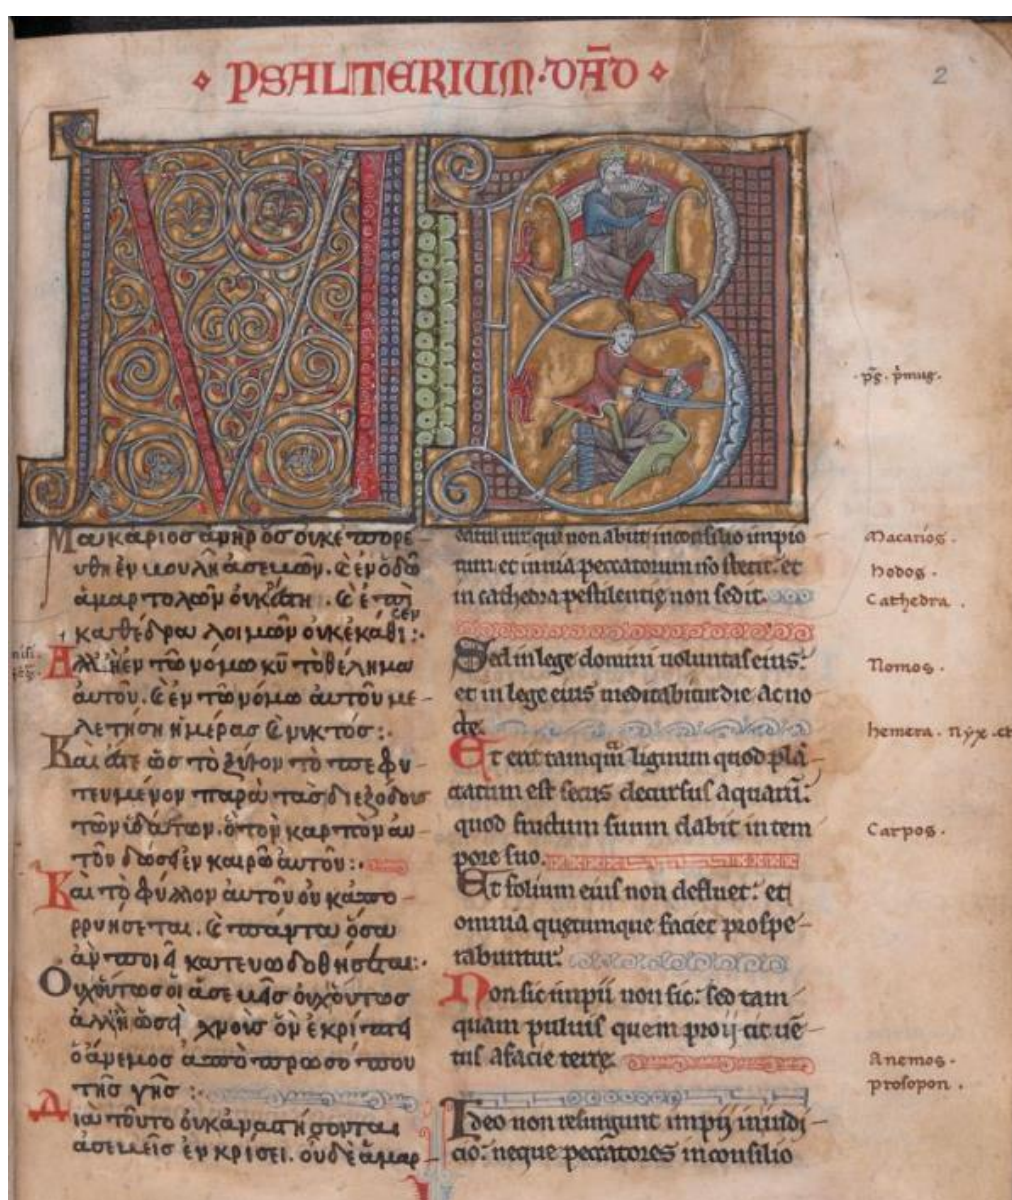 PSALITERIUM·DĀD
2
Μακάριοσ ἀνὴρ ὃσ οὐκ ἐπορε
ύθη ἐν βουλῆ ἀσεβῶν. ϗ ἐν ὁδῶ
ἁμαρτολῶν οὐκ ἔστη. ϗ ἐπὶ
καθέδρα λοιμῶν οὐκ ἐκάθι:·
σεν
Ἀλλ' ἢ ἐν τῶ νόμω κῦ τὸ θέλημα
ἀυτοῦ. ϗ ἐν τῶ νόμω ἀυτοῦ με–
λετήση ἡμέρασ ϗ νικτόσ:·
Καὶ ἔστε ὡσ τὸ ξύλον τὸ πεφυ
τευμένον παρὰ τὰσ διεξόδουσ
τῶν ἱδάτων. ὃ τὸν καρπὸν ἀυ–
τοῦ δώσει ἐν καιρῶ ἀυτοῦ:·
Καὶ τὸ φύλλον ἀυτοῦ οὐκ ἀπο
ρρυήσεται. ϗ πάντα ὅσα
ἂν ποιῆ κατευοδοθήσεται:·
Οὐχ οὕτωσ οἱ ἀσεβεῖσ οὐχ οὕτωσ
ἀλλ' ἢ ὡσεὶ χνοῦσ ὃν ἐκρίπτει
ὁ ἄνεμοσ ἀπὸ προσόπου
τῆσ γῆσ:
Διὰ τοῦτο οὐκ ἀναστήσονται
ἀσεβεῖσ ἐν κρίσει. οὐδὲ ἁμαρ
B
eatus uir qui non abiit in consilio impio
rum et in uia peccatorum nō stetit: et
in cathedra pestilentię non sedit.
Sed in lege domini uoluntas eius:
et in lege eius meditabitur die ac no
cte.
Et erit tamquā lignum quod plā–
tatum est secus decursus aquarū:
quod fructum suum dabit in tem
pore suo.
Et folium eius non defluet: et
omnia quęcumque faciet prospe–
rabuntur.
Non sic impii non sic: sed tam
quam puluis quem proijcit uē–
tus a facie terrę.
Ideo non resurgunt impij in iudi–
cio: neque peccatores in consilio
Macarios.
hodos.
Cathedra.
Nomos.
hemera. nyx.
Carpos.
Anemos.
prosopon.